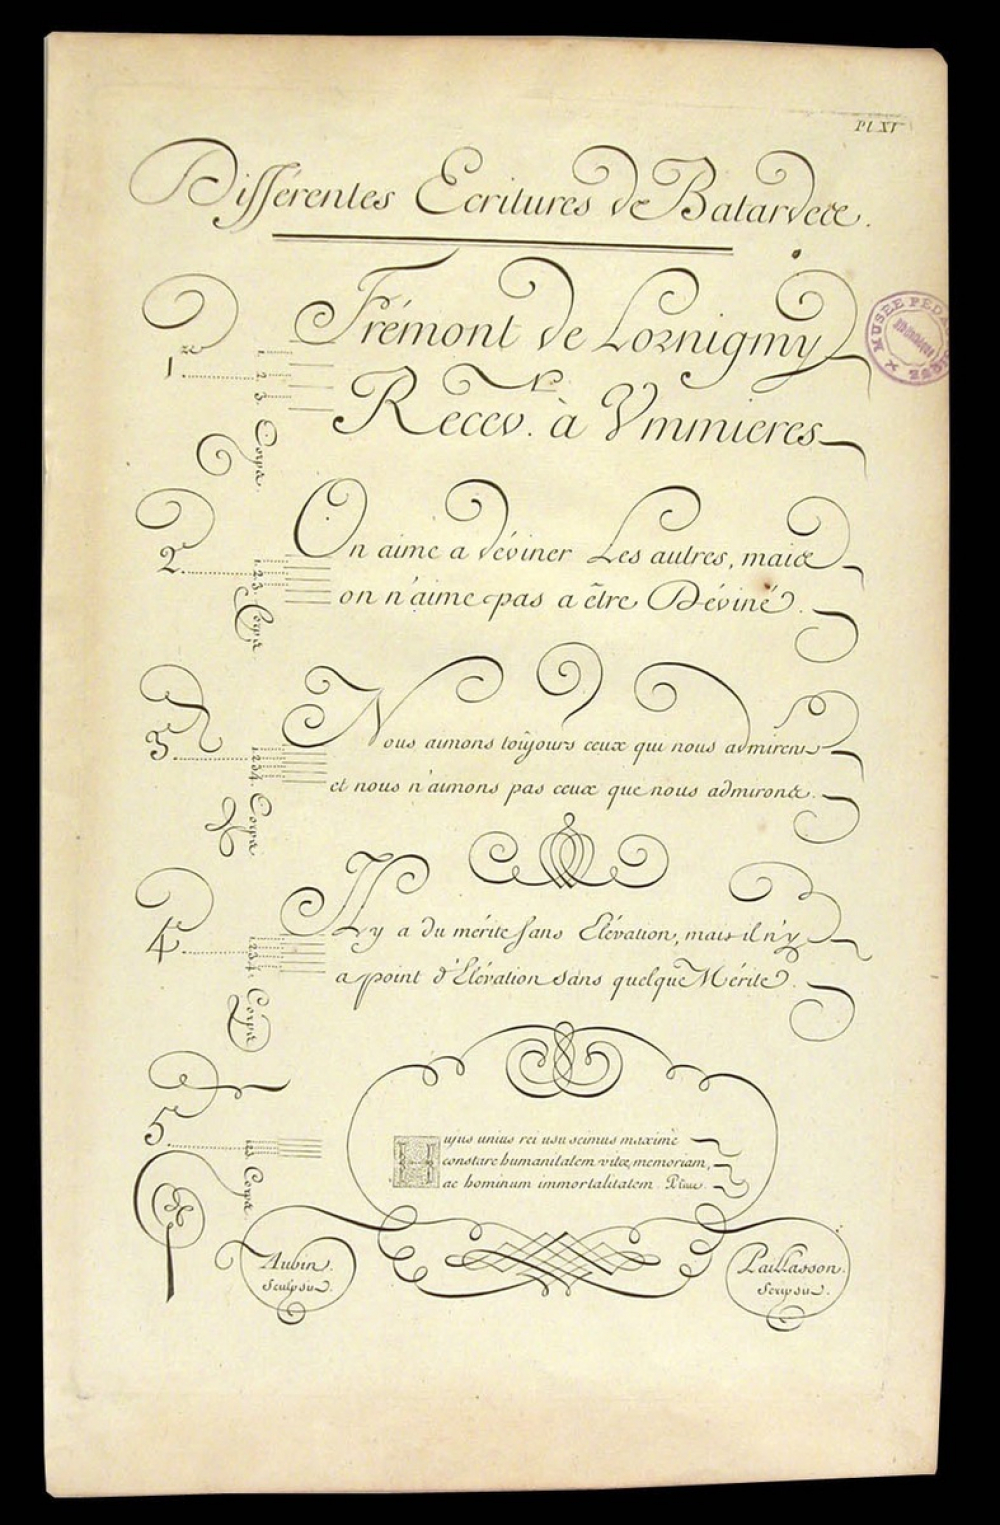 Pl. XI
Différentes Ecritures de Batardes.
Frémont de Lornigmy
1
1 2 3. Corps.
Recev. à Vmmieres
On aime a déviner Les autres, mais
2
1 2 3. Corps
on n'aime pas a être Déviné.
Nous aimons toûjours ceux qui nous admirent
3
1 2 3 4. Corps
et nous n'aimons pas ceux que nous admirons.
Il y a du mérite sans Elévation, mais il n'y
4
1 2 3 4. Corps
a point d'Elévation sans quelque Mérite.
5
Corps
Hujus unius rei usu scimus maximè
constare humanitatem vitæ, memoriam,
ac hominum immortalitatem. Pline.
Aubin.
Sculpsit.
Paillasson.
Scripsit.
MUSÉE PÉDA